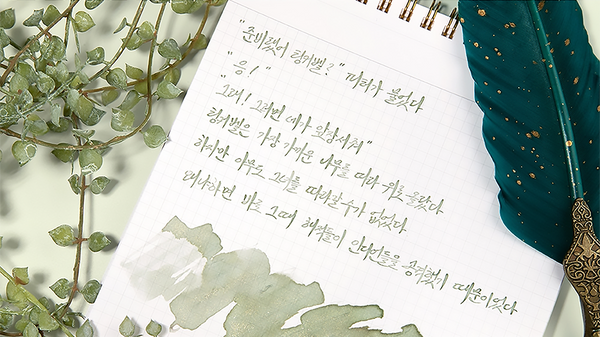 "준비됐어 팅커벨?" 피터가 물었다
"응!"
그래! 그러면 네가 앞장서줘"
팅커벨은 가장 가까운 나무를 따라 위로 올랐다
하지만 아무도 그녀를 따라갈 수가 없었다.
왜냐하면 바로 그때 해적들이 인디언들을 공격했기 때문이었다